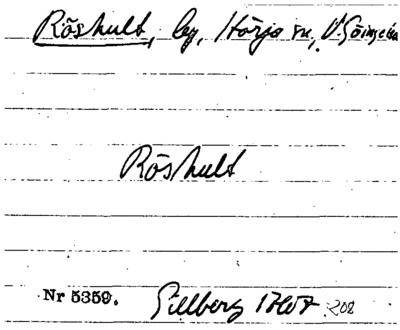 Röshult, by, Hörja sn, V. Göinge hd
Röshult
Nr 5359. Gillberg 1767 202